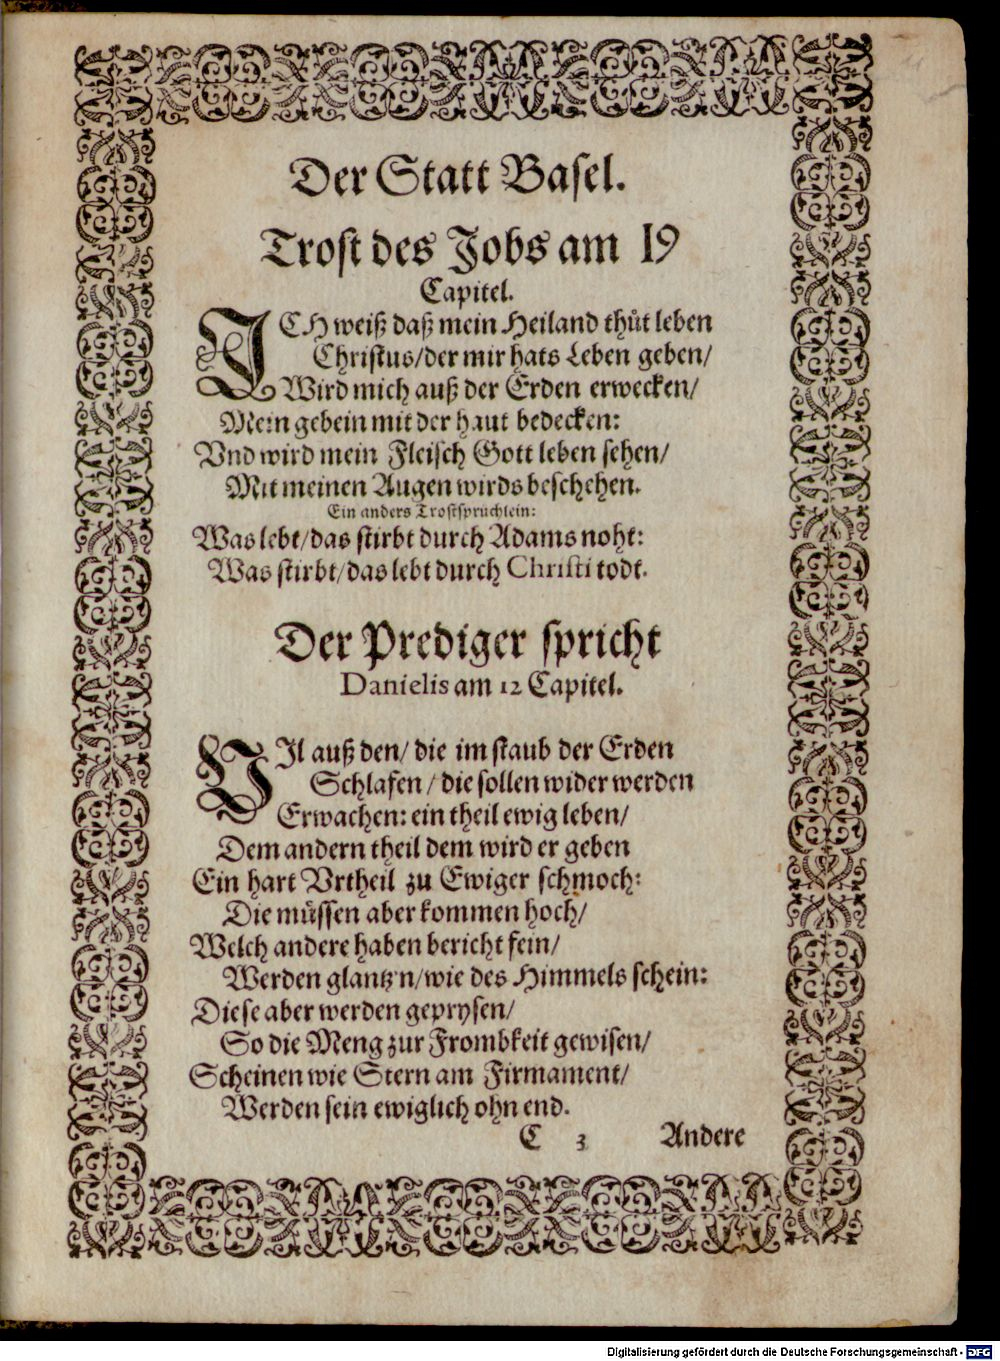 Der Statt Basel.
Trost des Jobs am 19
Capitel.
ICH weiß daß mein Heiland thůt leben
Christus/der mir hats Leben geben/
Wird mich auß der Erden erwecken/
Mein gebein mit der haut bedecken:
Vnd wird mein Fleisch Gott leben sehen/
Mit meinen Augen wirds beschehen.
Ein anders Trostsprüchlein:
Was lebt/das stirbt durch Adams noht:
Was stirbt/das lebt durch Christi todt.
Der Prediger spricht
Danielis am 12 Capitel.
VIl auß den/ die im staub der Erden
Schlafen / die sollen wider werden
Erwachen: ein theil ewig leben/
Dem andern theil dem wird er geben
Ein hart Vrtheil zu Ewiger schmoch:
Die müssen aber kommen hoch/
Welch andere haben bericht fein/
Werden glantz'n/wie des Himmels schein:
Diese aber werden geprysen/
So die Meng zur Frombkeit gewisen/
Scheinen wie Stern am Firmament/
Werden sein ewiglich ohn end.
C 3 Andere
Digitalisierung gefördert durch die Deutsche Forschungsgemeinschaft - DFG